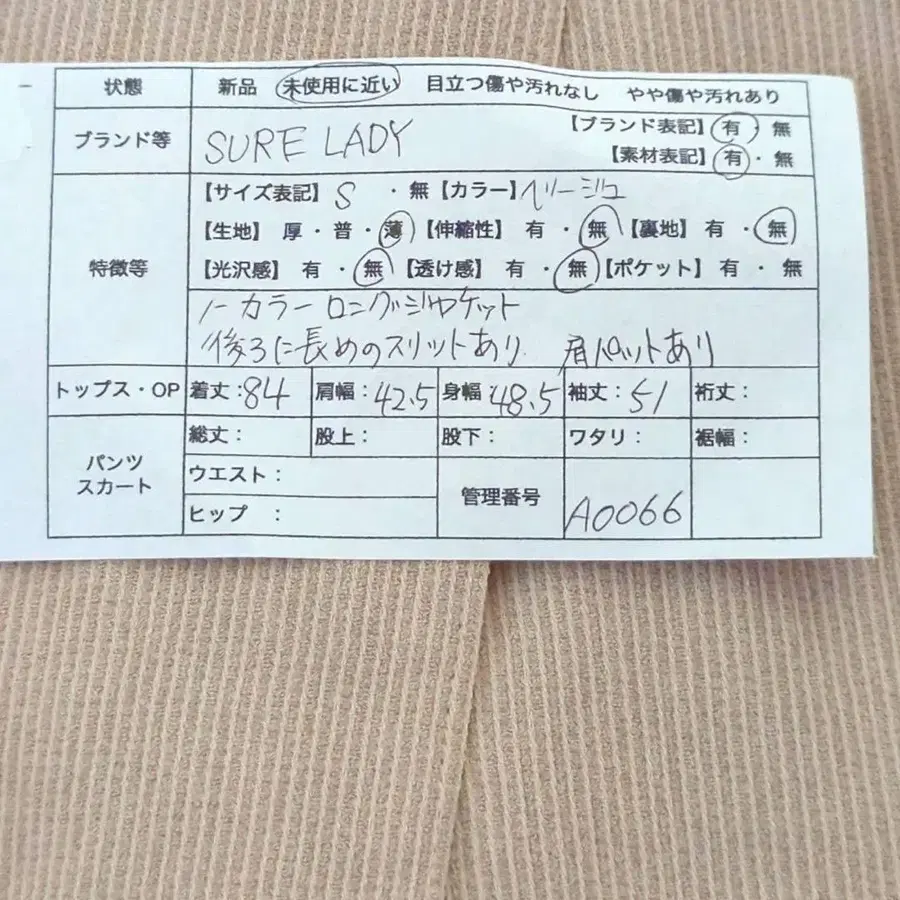 状態 新品 未使用に近い 目立つ傷や汚れなし やや傷や汚れあり
ブランド等 SURE LADY 【ブランド表記】 有 ・ 無
【素材表記】 有 ・ 無
特徴等 【サイズ表記】 S ・ 無 【カラー】 ベージュ
【生地】 厚 ・ 普 ・ 薄 【伸縮性】 有 ・ 無 【裏地】 有 ・ 無
【光沢感】 有 ・ 無 【透け感】 有 ・ 無 【ポケット】 有 ・ 無
ノーカラーロングジャケット
後ろに長めのスリットあり 肩パットあり
トップス・OP 着丈:84 肩幅:42.5 身幅:48.5 袖丈:51 裄丈:
パンツ スカート 総丈: 股上: 股下: ワタリ: 裾幅:
ウエスト: 管理番号 A0066
ヒップ :